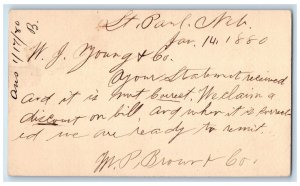 Ans 1/17/80
B.
St. Paul, Neb.
Jan. 14, 1880
W. J. Young & Co.
Your Statement received
and it is not Correct. We claim a
discount on bill, and when it is correct
ed we are ready to remit.
M. P. Brown & Co.